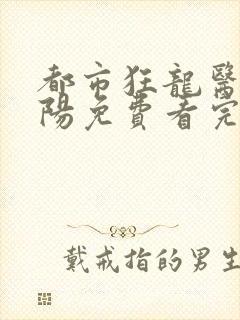 都市狂龍醫
陽免費看完
戴戒指的男生